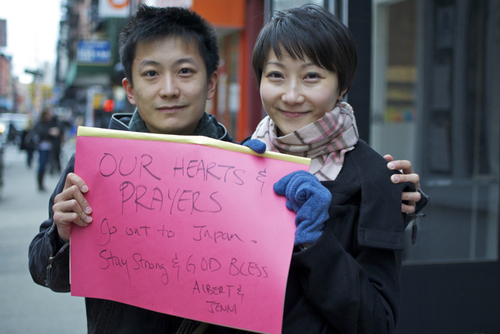 OUR HEARTS &
PRAYERS
Go out to Japan.
Stay Strong & GOD BLESS
ALBERT &
JENN